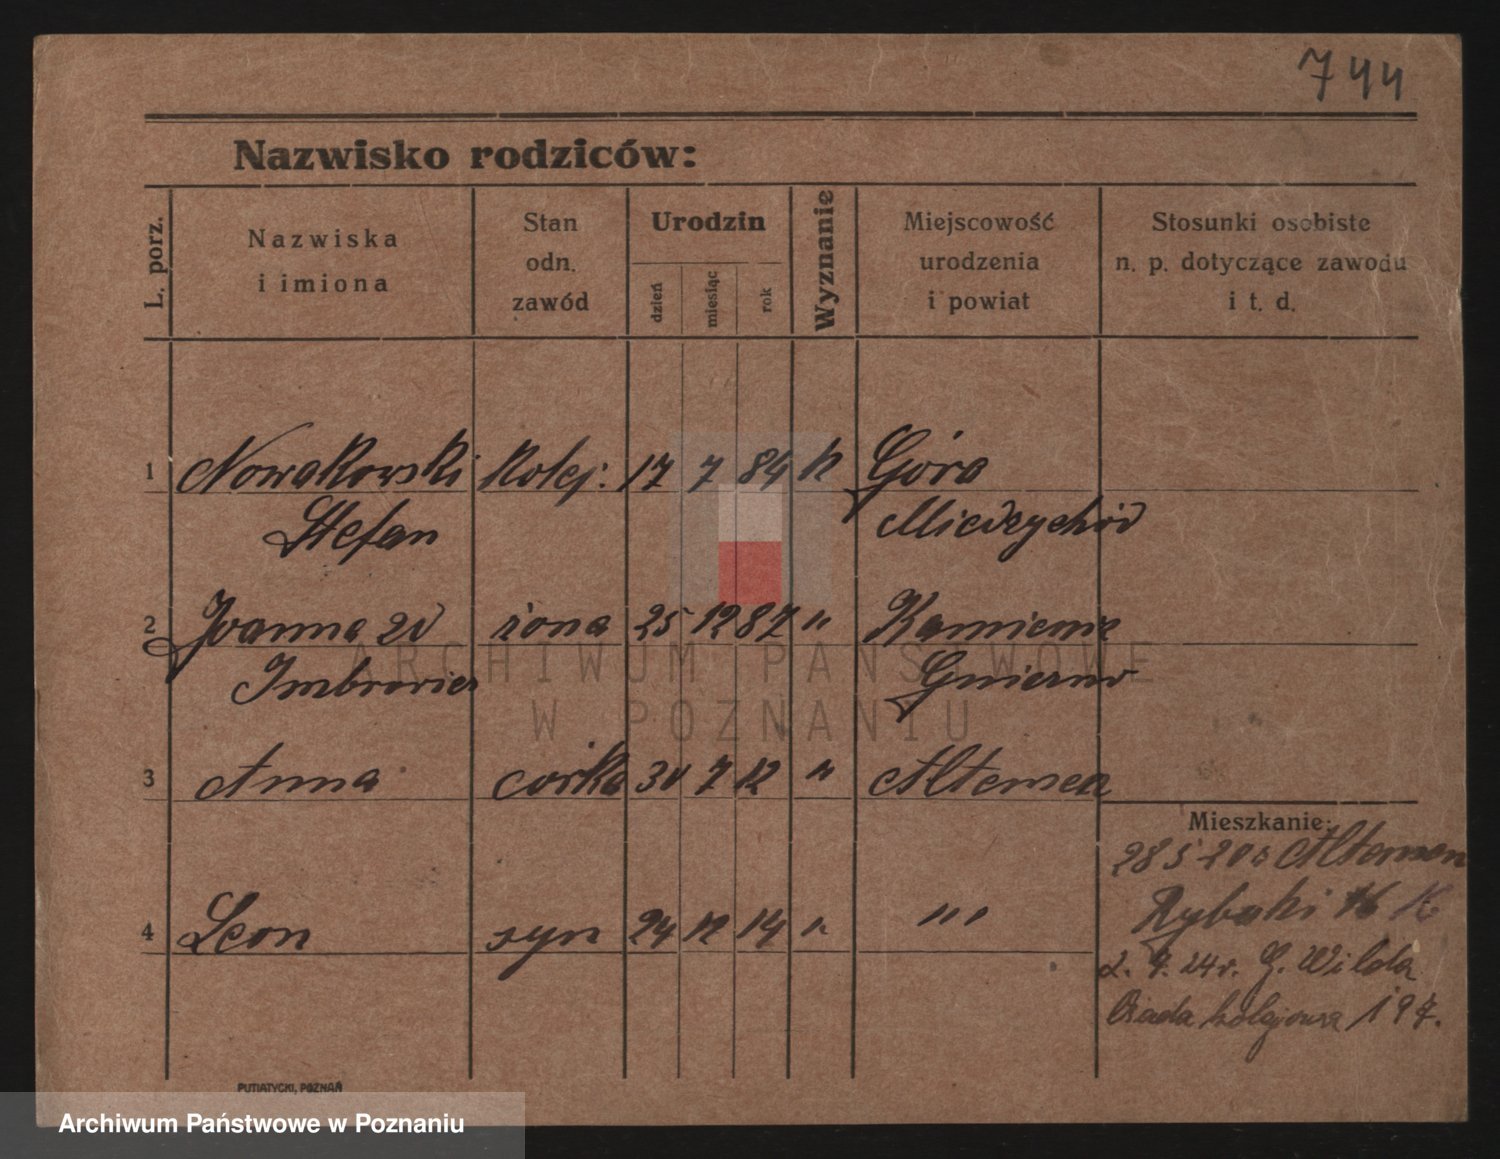 744
Nazwisko rodziców:
L. porz.
Nazwiska
i imiona
Stan
odn.
zawód
Urodzin
dzień
miesiąc
rok
Wyznanie
Miejscowość
urodzenia
i powiat
Stosunki osobiste
n. p. dotyczące zawodu
i t. d.
1 Nowakowski kolej: 17 7 84 k Góra
Stefan Miedzychód
2 Joanna żona 25 12 87 " Kamieniec
Gniezno
3 Anna corka 30 7 12 " Altemen
Mieszkanie:
28 5 20 Altemen
4 Leon syn 24 12 14 " " "
Rybaki 16
2. 9. 24 r. G. Wilda
Osada kolejowa 197.
PUTIATYCKI, POZNAŃ
ARCHIWUM PAŃSTWOWE
W POZNANIU
Archiwum Państwowe w Poznaniu